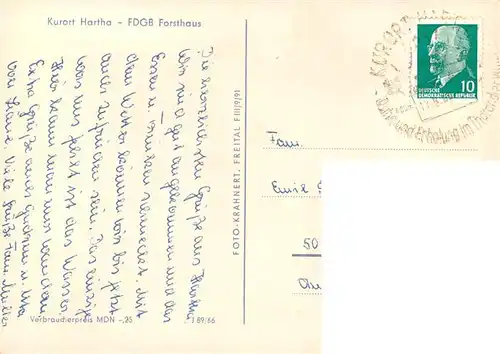 Kurort Hartha – FDGB Forsthaus
Die herzlichsten Grüße aus Hartha.
Wir sind gut angekommen und das
Essen u. trinken schmeckt. Mit
dem Wetter können wir bis jetzt
auch zufrieden sein. Das einzige
was uns fehlt ist das Wasser.
Hier kann man nur wandern.
Extra Grüße an u. Uta
von Hause. Viele Grüße Fam. Müller
Verbraucherpreis MDN -,25
I 89/66
FOTO-KRAHNERT, FREITAL F III/9/91
KURORT HARTHA
Erholung im Tharandter
DEUTSCHE
DEMOKRATISCHE REPUBLIK
10
Fam.
Emil
50